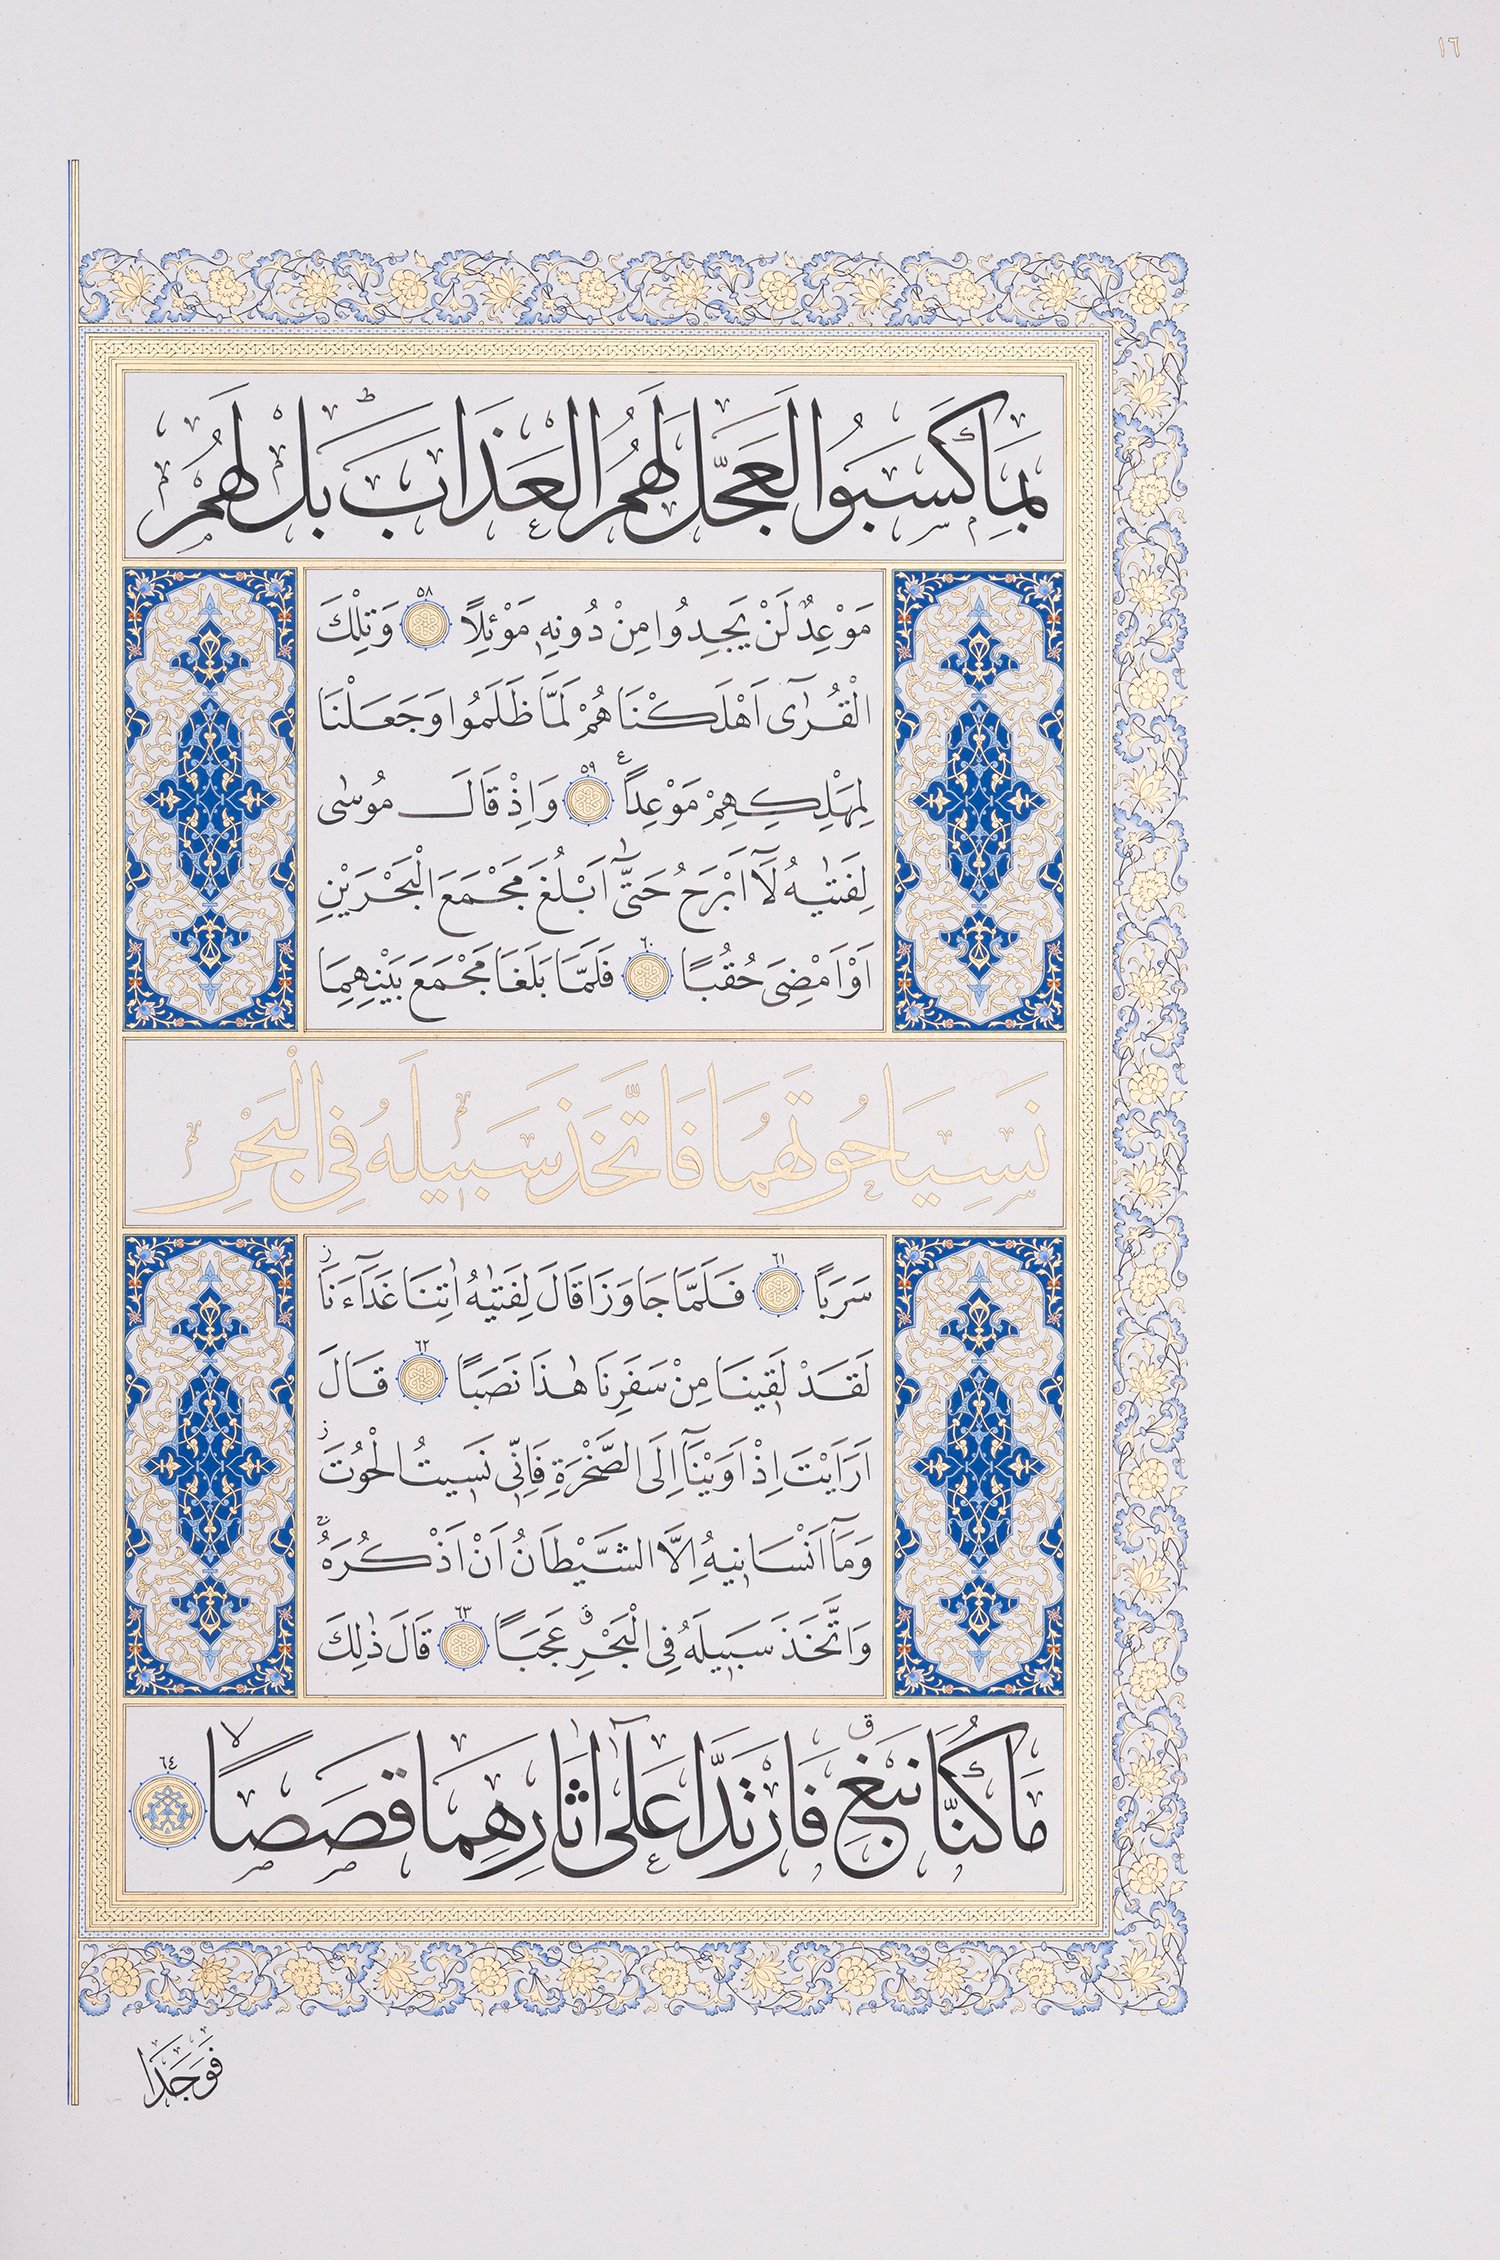 ١٦
بِمَا كَسَبُوا لَعَجَّلَ لَهُمُ الْعَذَابَۜ بَلْ لَهُمْ
مَوْعِدٌ لَنْ يَجِدُوا مِنْ دُونِهٖ مَوْئِلًا ٥٨ وَتِلْكَ
الْقُرٰٓى اَهْلَكْنَاهُمْ لَمَّا ظَلَمُوا وَجَعَلْنَا
لِمَهْلِكِهِمْ مَوْعِدًا ع ٥٩ وَاِذْ قَالَ مُوسٰى
لِفَتٰيهُ لَٓا اَبْرَحُ حَتّٰٓى اَبْلُغَ مَجْمَعَ الْبَحْرَيْنِ
اَوْ اَمْضِيَ حُقُبًا ٦٠ فَلَمَّا بَلَغَا مَجْمَعَ بَيْنِهِمَا
نَسِيَا حُوتَهُمَا فَاتَّخَذَ سَبٖيلَهُ فِي الْبَحْرِ
سَرَبًا ٦١ فَلَمَّا جَاوَزَا قَالَ لِفَتٰيهُ اٰتِنَا غَدَٓاءَنَا ز
لَقَدْ لَقٖينَا مِنْ سَفَرِنَا هٰذَا نَصَبًا ٦٢ قَالَ
اَرَاَيْتَ اِذْ اَوَيْنَٓا اِلَى الصَّخْرَةِ فَاِنّٖي نَسٖيتُ الْحُوتَ ز
وَمَٓا اَنْسَانٖيهُ اِلَّا الشَّيْطَانُ اَنْ اَذْكُرَهُۚ
وَاتَّخَذَ سَبٖيلَهُ فِي الْبَحْرِ ق عَجَبًا ٦٣ قَالَ ذٰلِكَ
مَا كُنَّا نَبْغِ ق فَارْتَدَّا عَلٰٓى اٰثَارِهِمَا قَصَصًا لا ٦٤
فَوَجَدَا